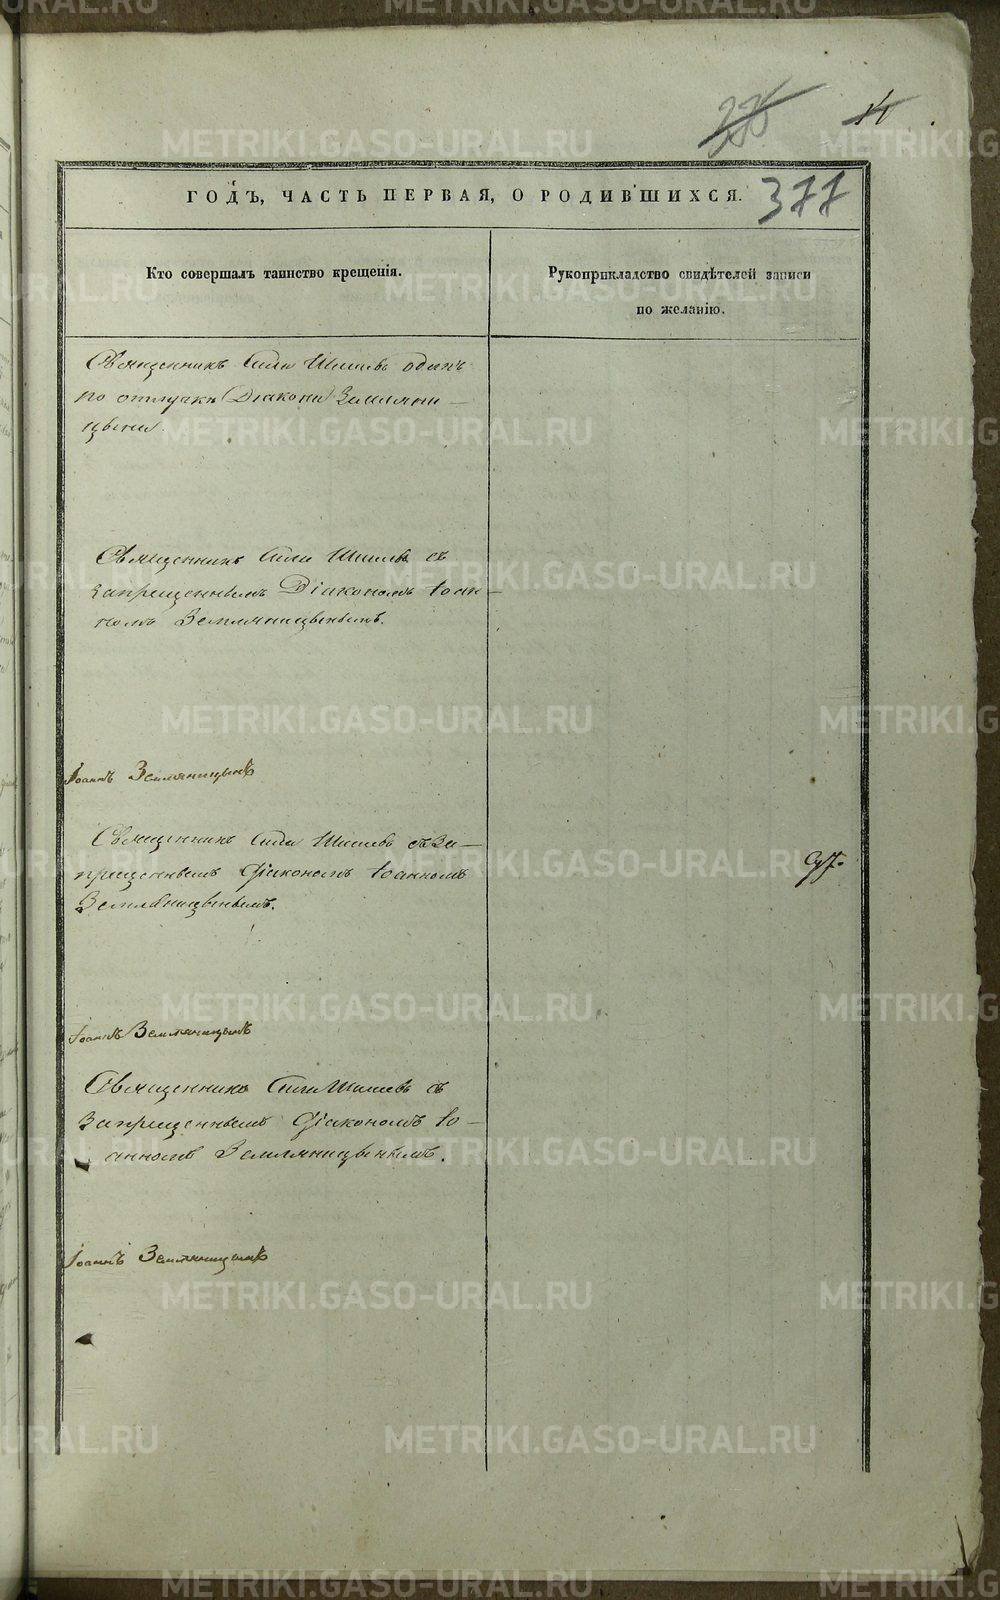 377
ГОДЪ, ЧАСТЬ ПЕРВАЯ, О РОДИВШИХСЯ.
Кто совершалъ таинство крещенія.
Рукоприкладство свидѣтелей записи
по желанію.
Священникъ Сила Шишевъ одинъ
по отлучкѣ Діакона Земляни–
цына
Священникъ Сила Шишевъ съ
запрещеннымъ Діакономъ Іоан–
номъ Земляницынымъ.
Іоаннъ Земляницынъ
Священникъ Сила Шишевъ съ за–
прещеннымъ Діакономъ Іоанномъ
Земляницынымъ.
Іоаннъ Земляницынъ
Священникъ Сила Шишевъ съ
запрещеннымъ Діакономъ Іо–
анномъ Земляницынымъ.
Іоаннъ Земляницынъ
METRIKI.GASO-URAL.RU